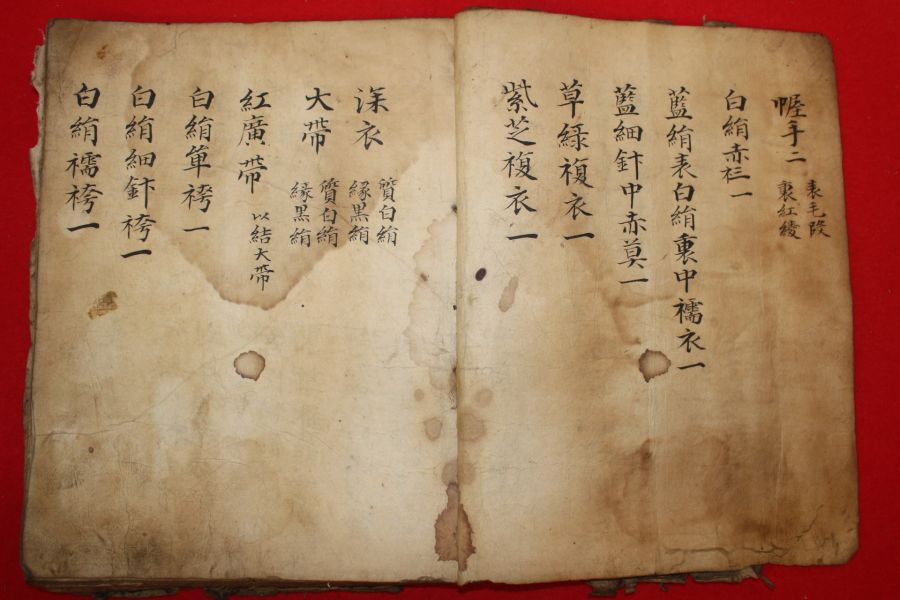 幄手二 表毛段 裏紅綾
白絹赤衫一
藍絹表白絹裏中襦衣一
藍細針中赤莫一
草綠複衣一
紫芝複衣一
深衣 質白絹 緣黑絹
大帶 質白絹 緣黑絹
紅廣帶 以結大帶
白絹单袴一
白絹細針袴一
白絹襦袴一